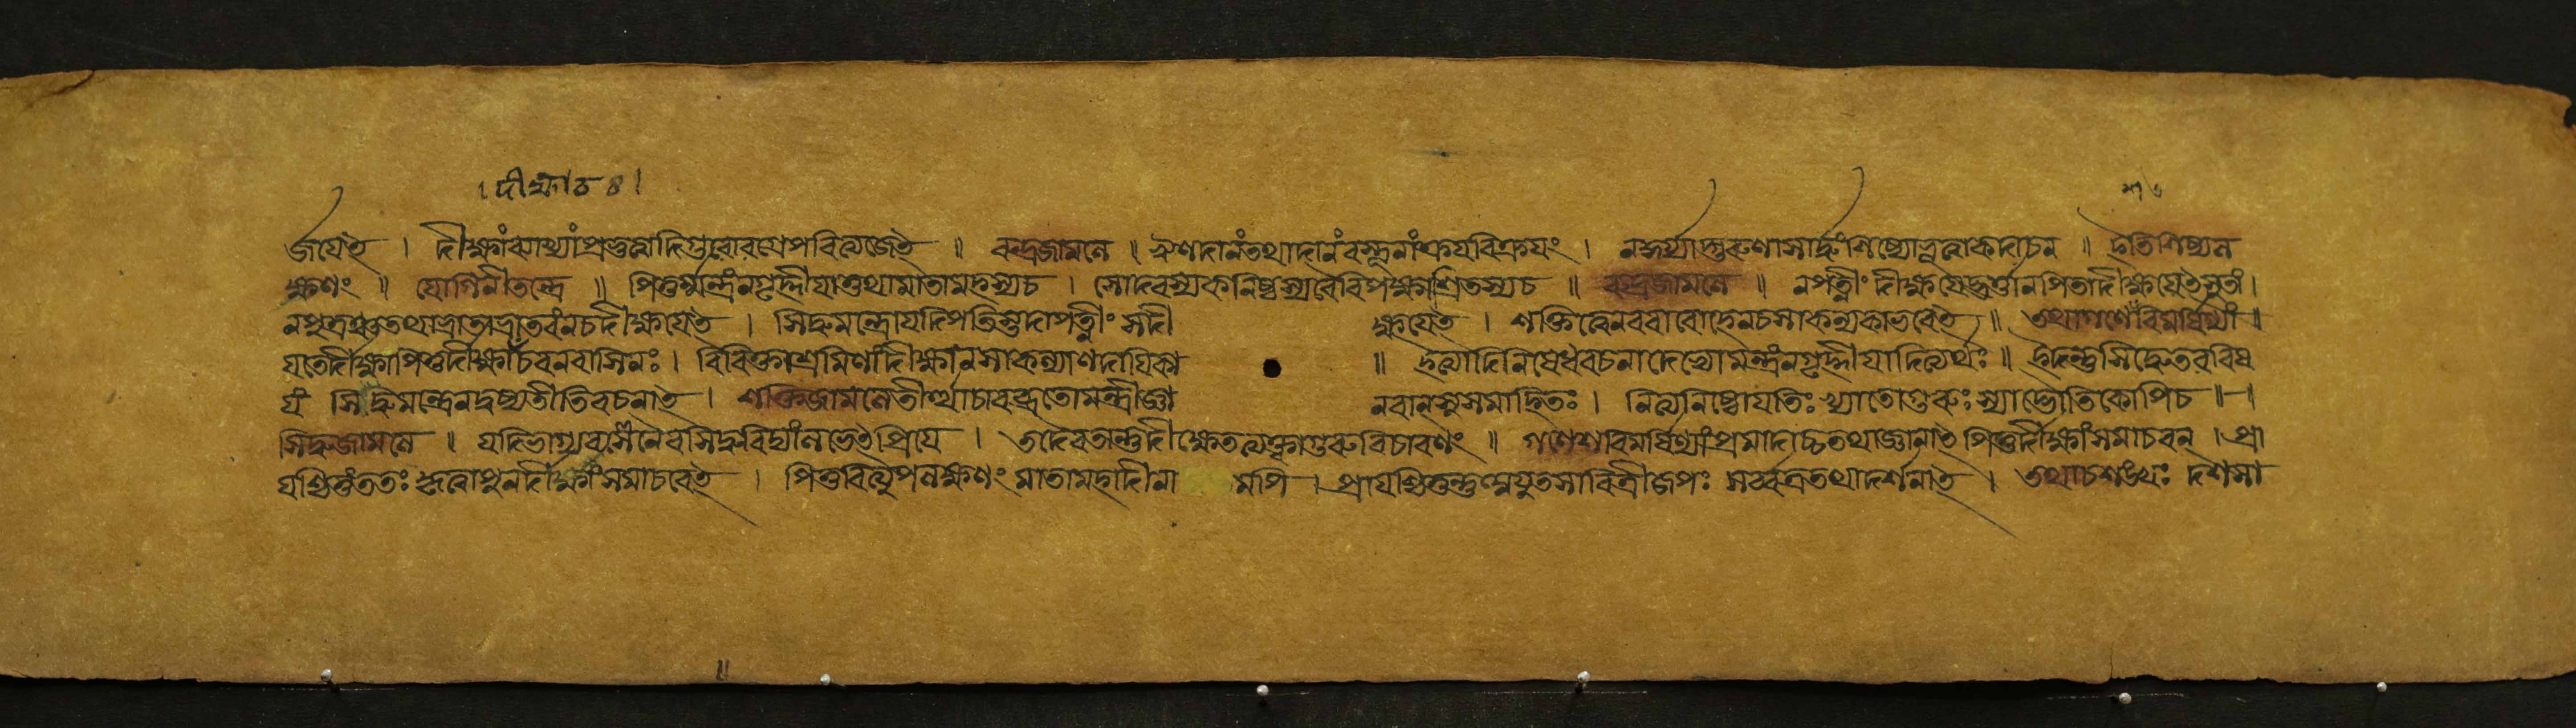 ।দীক্ষাত৪।
র্জয়েৎ । দীক্ষাংব্যাখ্যাংপ্রভুত্বাদিগুরোরগ্রেপরিত্যজেৎ ॥ রুদ্রজামলে ॥ ঋণদানংতথাদানংবস্তূনাংক্রয়বিক্রয়ং । নকুর্য্যাদ্গুরুণাসার্দ্ধংশিষ্যোভূত্বাকদাচন ॥ ইতিশিষ্যল
ক্ষণং ॥ যোগিনীতন্ত্রে ॥ পিতুর্ম্মন্ত্রংনগৃহ্নীয়াত্তথামাতামহস্যচ । সোদরস্যকনিষ্ঠস্যবৈরিপক্ষাশ্রিতস্যচ ॥ রুদ্রজামলে ॥ নপত্নীংদীক্ষয়েদ্ভর্ত্তানপিতাদীক্ষয়েৎসুতাং।
নপুত্রঞ্চতথাভ্রাতাভ্রাতরংনচদীক্ষয়েৎ । সিদ্ধমন্ত্রোযদিপতিস্তদাপত্নীংসদী ক্ষয়েৎ । শক্তিত্বেনবরারোহেনচসাকন্যকাভবেৎ ॥ তথাগণেশবিমর্ষিণ্যাং॥
যতের্দীক্ষাপিতুর্দীক্ষাচবনবাসিনঃ। বিবিক্তাশ্রমিণাংদীক্ষানসাকল্যাণদায়িকা ॥ ইত্যাদিনিষেধবচনাদেভ্যোমন্ত্রংনগৃহ্নীয়াদিত্যর্থঃ॥ ইদন্তুসিদ্ধেতরবিষ
য়ং সিদ্ধমন্ত্রেনদুষ্যতীতিবচনাৎ । শক্তিজামলেতীর্থাচারব্রতোমন্ত্রীজ্ঞা নবানসুসমাহিতঃ । নিত্যনিষ্ঠোযতিঃখ্যাতোগুরুঃস্যাদ্ভৌতিকোপিচ ॥।
সিদ্ধজামলে ॥ যদিভাগ্যবসেনৈবসিদ্ধবিদ্যাংলভেৎপ্রিয়ে । তদৈবতান্তুদীক্ষেতত্যক্ত্বাগুরুবিচারণং ॥ গণেশবিমর্ষিণ্যাংপ্রমাদাচ্চতথাজ্ঞানাৎপিতুর্দীক্ষাংসমাচরন্ ।প্রা
য়শ্চিত্তংততঃকৃত্বাপুনর্দীক্ষাংসমাচরেৎ । পিতুরিত্যুপলক্ষণং মাতামহাদীনা মপি । প্রায়শ্চিত্তন্তুঅযুতসাবিত্রীজপঃ সর্ব্বত্রতথাদর্শনাৎ । তথাচশঙ্খঃ দশসা